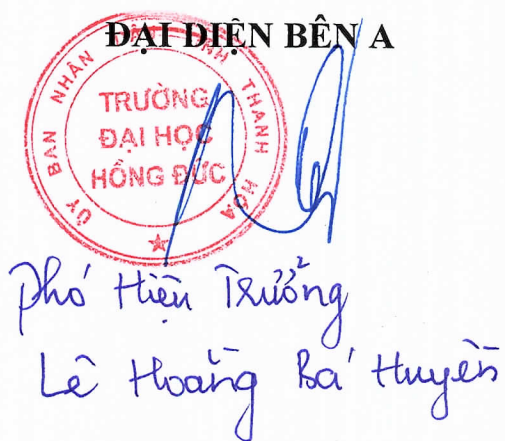 ĐẠI DIỆN BÊN A
ỦY BAN NHÂN DÂN TỈNH THANH HÓA
TRƯỜNG
ĐẠI HỌC
HỒNG ĐỨC
Phó Hiệu Trưởng
Lê Hoằng Bá Huyền